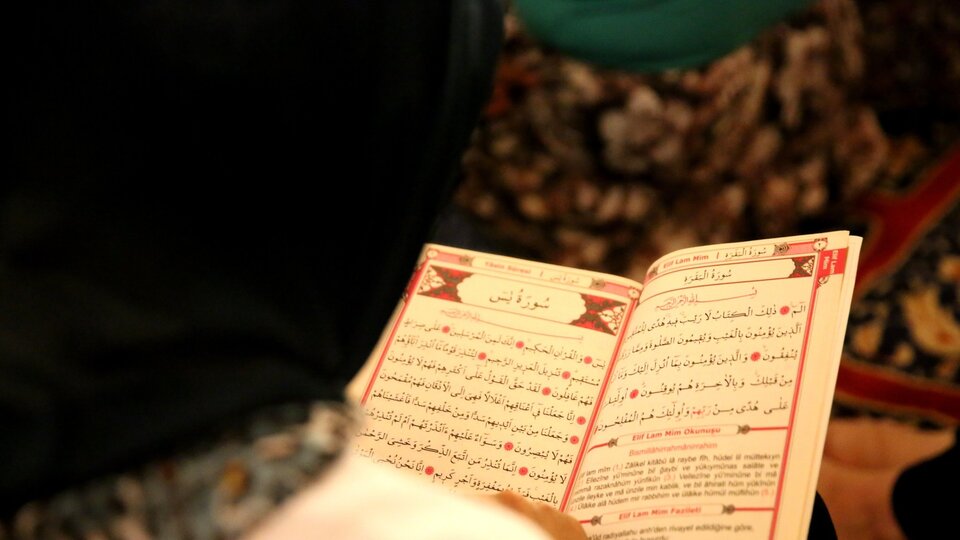 Elif Lam Mim
سُورَةُ الْبَقَرَةِ
Elif Lam Mim
سُورَةُ الْبَقَرَةِ
بِسْمِ اللّٰهِ الرَّحْمٰنِ الرَّحِيمِ
الٓمٓ ذٰلِكَ الْكِتَابُ لَا رَيْبَ فِيهِ هُدًى لِلْمُتَّقِينَ
الَّذِينَ يُؤْمِنُونَ بِالْغَيْبِ وَيُقِيمُونَ الصَّلٰوةَ وَمِمَّا رَزَقْنَاهُمْ
يُنْفِقُونَ وَالَّذِينَ يُؤْمِنُونَ بِمَا اُنْزِلَ اِلَيْكَ وَمَا
مِنْ قَبْلِكَ وَبِالْاٰخِرَةِ هُمْ يُوقِنُونَ اُولٰئِكَ
عَلٰى هُدًى مِنْ رَبِّهِمْ وَاُولٰئِكَ هُمُ الْمُفْلِحُونَ
Elif Lam Mim Okunuşu
Bismillâhirrahmânirrahîm
lif lâm mîm (1.) Zâlikel kitâbü lâ raybe fîh, hüdel lil müttekıyn
Ellezîne yü'minûne bil ğaybi ve yükıymûnas salâte ve
immâ razaknâhüm yünfikûn (3.) Vellezîne yü'minûne bi mâ
nzile ileyke ve mâ ünzile min kablik, ve bil âhirati hüm yûkinûn
Ülâike alâ hüdem mir rabbihim ve ülâike hümül müflihûn (5.)
Elif Lam Mim Fazileti
radiyallahu anh'den rivayel edildiğine göre,
Yâsin Suresi
سُورَةُ يٰسٓ
سُورَةُ يٰسٓ
يٰسٓ وَالْقُرْاٰنِ الْحَكِيمِ اِنَّكَ لَمِنَ الْمُرْسَلِينَ عَلٰى صِرَاطٍ
مُسْتَقِيمٍ تَنْزِيلَ الْعَزِيزِ الرَّحِيمِ لِتُنْذِرَ قَوْمًا مَا اُنْذِرَ اٰبَاؤُهُمْ
فَهُمْ غَافِلُونَ لَقَدْ حَقَّ الْقَوْلُ عَلٰى اَكْثَرِهِمْ فَهُمْ لَا يُؤْمِنُونَ
اِنَّا جَعَلْنَا فِى اَعْنَاقِهِمْ اَغْلَالًا فَهِىَ اِلَى الْاَذْقَانِ فَهُمْ مُقْمَحُونَ
وَجَعَلْنَا مِنْ بَيْنِ اَيْدِيهِمْ سَدًّا وَمِنْ خَلْفِهِمْ سَدًّا فَاَغْشَيْنَاهُمْ
فَهُمْ لَا يُبْصِرُونَ وَسَوَاءٌ عَلَيْهِمْ ءَاَنْذَرْتَهُمْ اَمْ لَمْ تُنْذِرْهُمْ
لَا يُؤْمِنُونَ اِنَّمَا تُنْذِرُ مَنِ اتَّبَعَ الذِّكْرَ وَخَشِىَ الرَّحْمٰنَ
بِالْغَيْبِ وَاَجْرٍ كَرِيمٍ اِنَّا نَحْنُ